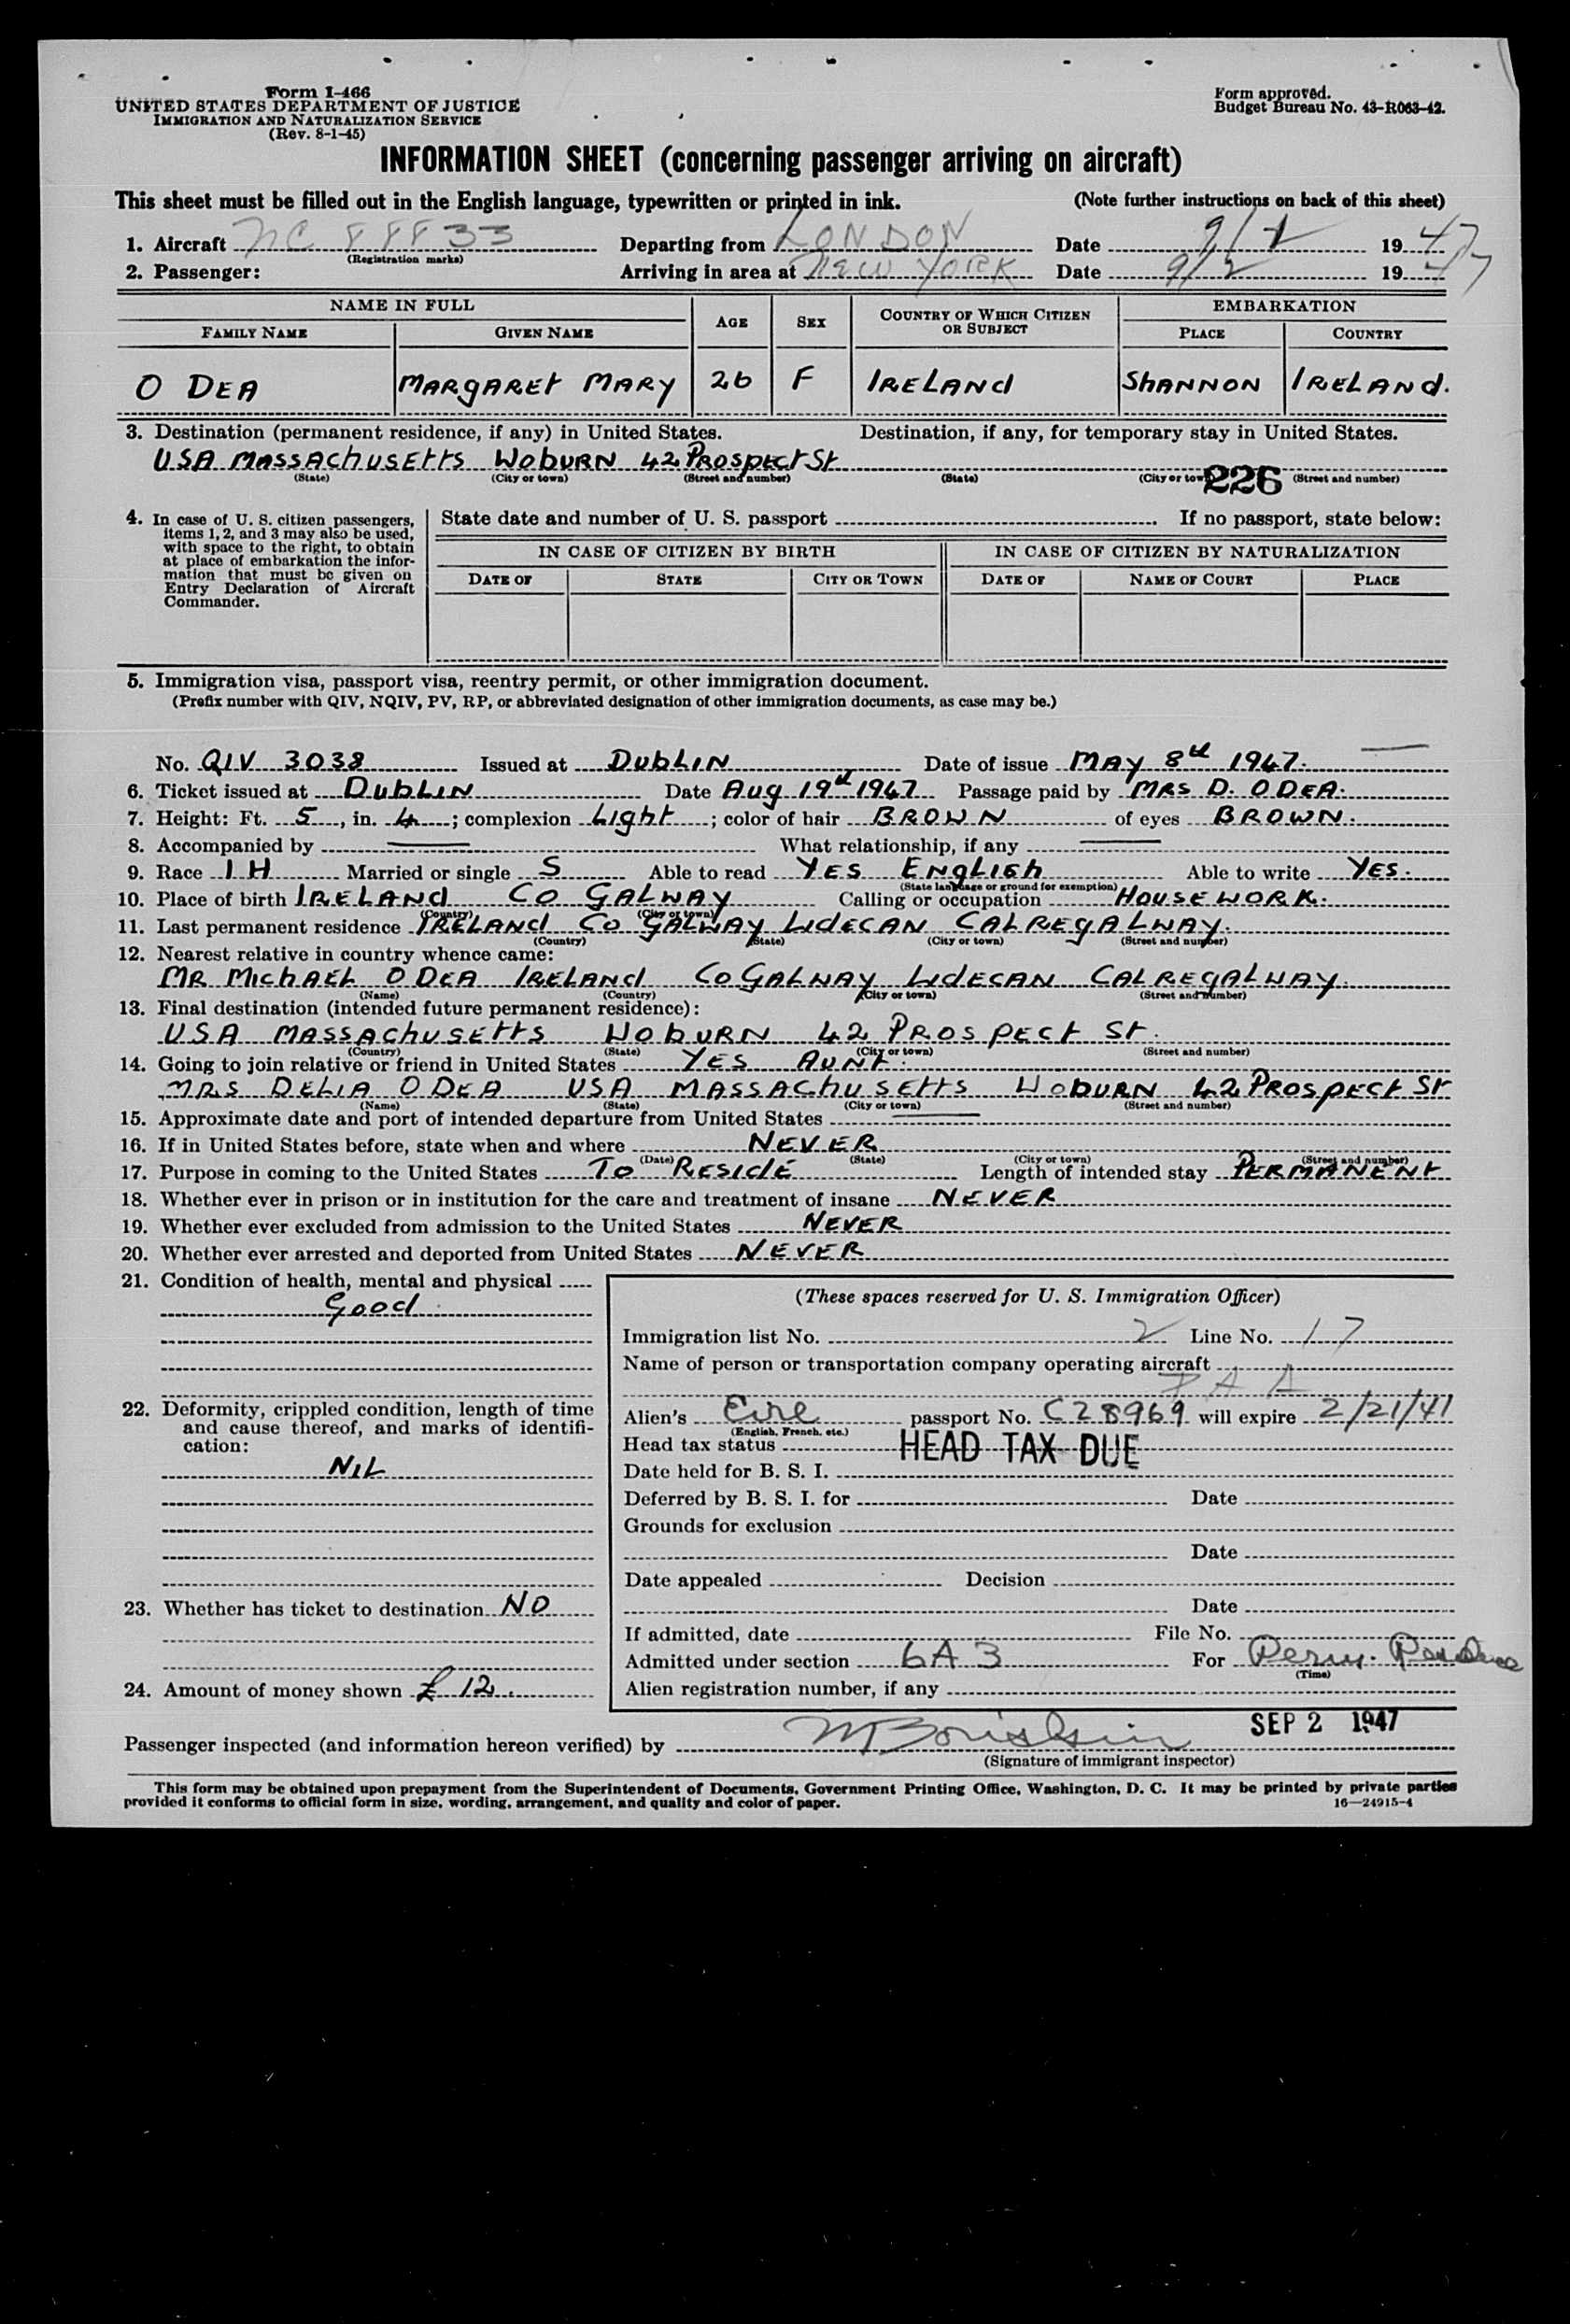 Form I-466
UNITED STATES DEPARTMENT OF JUSTICE
IMMIGRATION AND NATURALIZATION SERVICE
(Rev. 8-1-45)
Form approved.
Budget Bureau No. 43-R063-42.
INFORMATION SHEET (concerning passenger arriving on aircraft)
This sheet must be filled out in the English language, typewritten or printed in ink. (Note further instructions on back of this sheet)
1. Aircraft NC 88833 Departing from LONDON Date 9/1 1947
(Registration marks)
2. Passenger: Arriving in area at NEW YORK Date 9/2 1947
NAME IN FULL AGE SEX COUNTRY OF WHICH CITIZEN OR SUBJECT EMBARKATION
FAMILY NAME GIVEN NAME PLACE COUNTRY
O DEA MARGARET MARY 26 F IRELAND SHANNON IRELAND.
3. Destination (permanent residence, if any) in United States. Destination, if any, for temporary stay in United States.
USA MASSACHUSETTS WOBURN 42 PROSPECT St
(State) (City or town) (Street and number) (State) (City or town) 226 (Street and number)
4. In case of U. S. citizen passengers, items 1, 2, and 3 may also be used, with space to the right, to obtain at place of embarkation the information that must be given on Entry Declaration of Aircraft Commander.
State date and number of U. S. passport If no passport, state below:
IN CASE OF CITIZEN BY BIRTH IN CASE OF CITIZEN BY NATURALIZATION
DATE OF STATE CITY OR TOWN DATE OF NAME OF COURT PLACE
5. Immigration visa, passport visa, reentry permit, or other immigration document.
(Prefix number with QIV, NQIV, PV, RP, or abbreviated designation of other immigration documents, as case may be.)
No. QIV 3038 Issued at DUBLIN Date of issue MAY 8th 1947.
6. Ticket issued at DUBLIN Date Aug 19th 1947 Passage paid by MRS D. ODEA.
7. Height: Ft. 5, in. 4; complexion Light; color of hair BROWN of eyes BROWN.
8. Accompanied by — What relationship, if any —
9. Race IH Married or single S Able to read YES ENGLISH Able to write YES.
(State language or ground for exemption)
10. Place of birth IRELAND CO GALWAY Calling or occupation HOUSEWORK.
(Country) (City or town)
11. Last permanent residence IRELAND CO GALWAY LIDECAN CALREGALWAY.
(Country) (State) (City or town) (Street and number)
12. Nearest relative in country whence came:
MR MICHAEL ODEA IRELAND CO GALWAY LIDECAN CALREGALWAY.
(Name) (Country) (City or town) (Street and number)
13. Final destination (intended future permanent residence):
USA MASSACHUSETTS WOBURN 42 PROSPECT St.
(Country) (State) (City or town) (Street and number)
14. Going to join relative or friend in United States YES AUNT.
MRS DELIA ODEA USA MASSACHUSETTS WOBURN 42 PROSPECT St
(Name) (State) (City or town) (Street and number)
15. Approximate date and port of intended departure from United States —
16. If in United States before, state when and where NEVER
(Date) (State) (City or town) (Street and number)
17. Purpose in coming to the United States TO RESIDE Length of intended stay PERMANENT
18. Whether ever in prison or in institution for the care and treatment of insane NEVER
19. Whether ever excluded from admission to the United States NEVER
20. Whether ever arrested and deported from United States NEVER
21. Condition of health, mental and physical
Good
22. Deformity, crippled condition, length of time and cause thereof, and marks of identification:
NIL
23. Whether has ticket to destination NO
24. Amount of money shown £ 12.
(These spaces reserved for U. S. Immigration Officer)
Immigration list No. 2 Line No. 17
Name of person or transportation company operating aircraft
PAA
Alien's Eire passport No. C28969 will expire 2/21/41
(English, French, etc.)
Head tax status HEAD TAX DUE
Date held for B. S. I.
Deferred by B. S. I. for Date
Grounds for exclusion
Date
Date appealed Decision
Date
If admitted, date File No.
Admitted under section 6A3 For Perm.
(Time)
Alien registration number, if any
SEP 2 1947
Passenger inspected (and information hereon verified) by
(Signature of immigrant inspector)
This form may be obtained upon prepayment from the Superintendent of Documents, Government Printing Office, Washington, D. C. It may be printed by private parties
provided it conforms to official form in size, wording, arrangement, and quality and color of paper. 16—24915-4